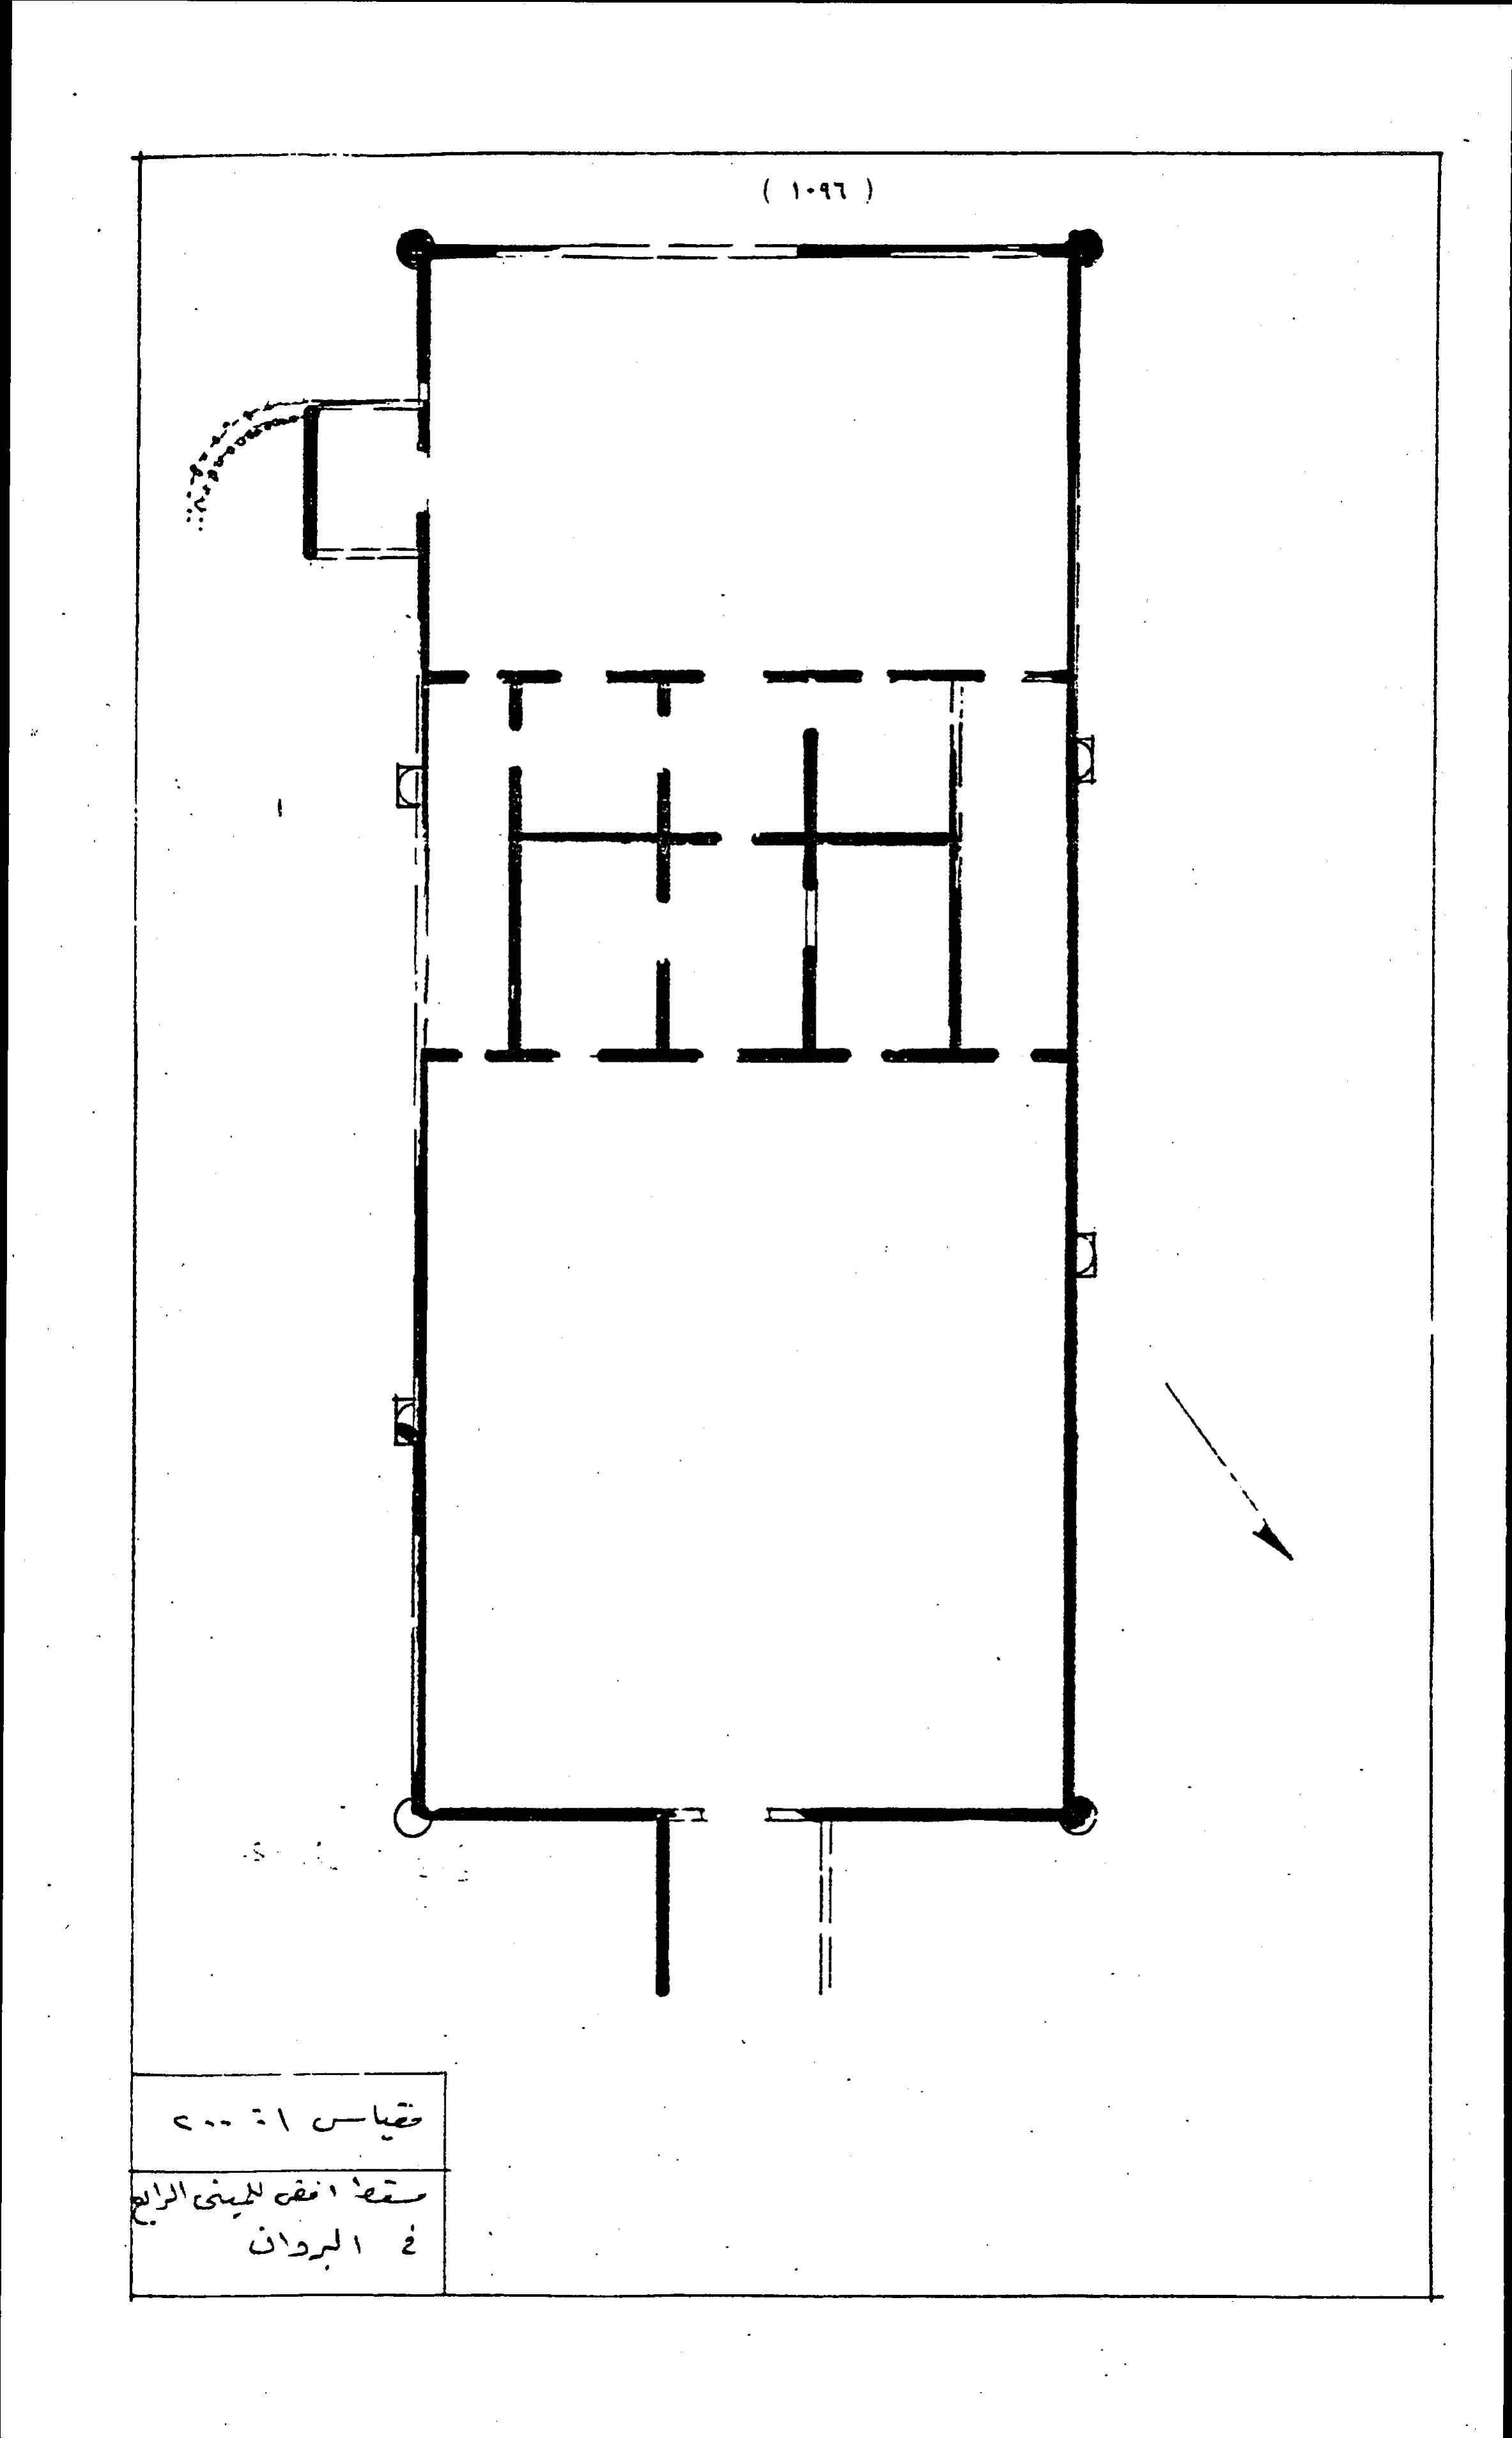 ( ١٠٩٦ )
مقياس ١ : ٢٠٠
مسقط افقي للمبنى الرابع
في البردان